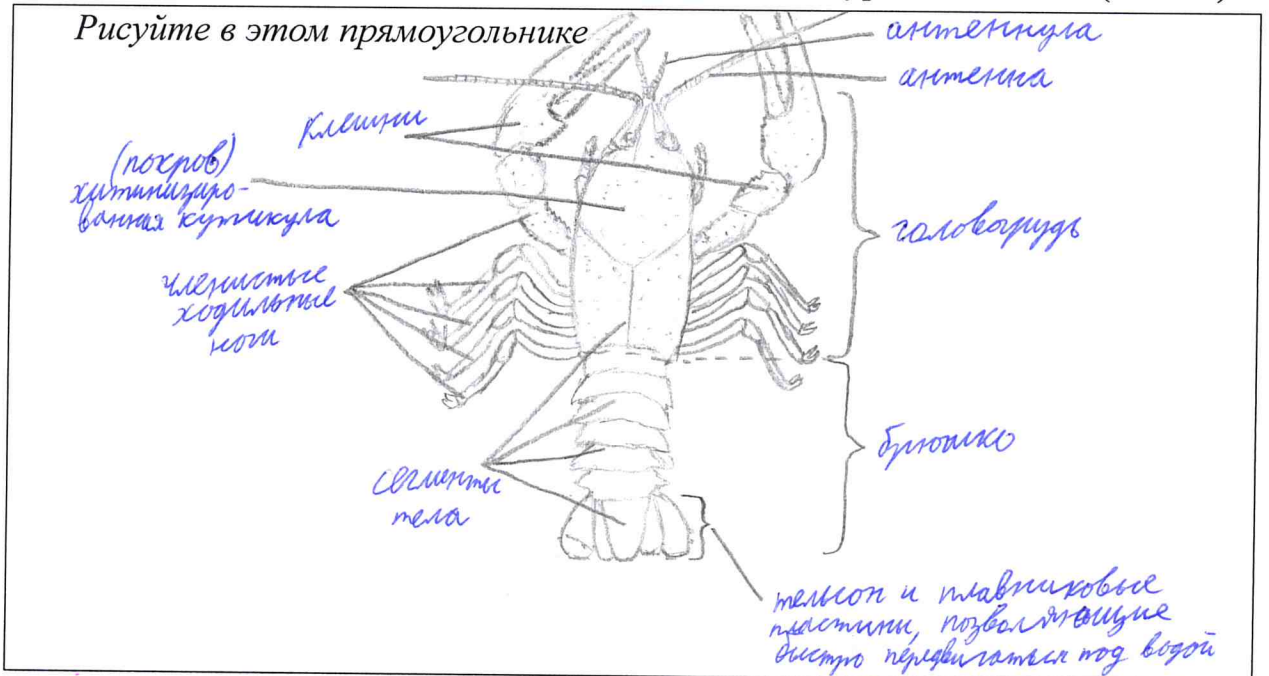 Рисуйте в этом прямоугольнике
антеннула
антенна
клешни
(покров)
хитинизиро-
ванная кутикула
головогрудь
членистые
ходильные
ноги
брюшко
сегменты
тела
тельсон и плавниковые
пластины, позволяющие
быстро передвигаться под водой